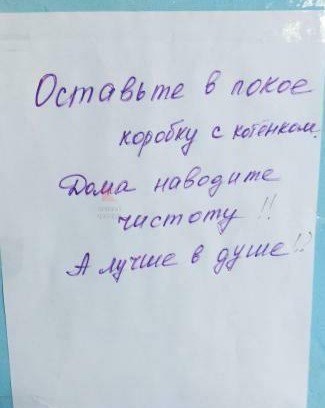 Оставьте в покое
коробку с котёнком.
Дома наводите
чистоту!!
А лучше в душе!?